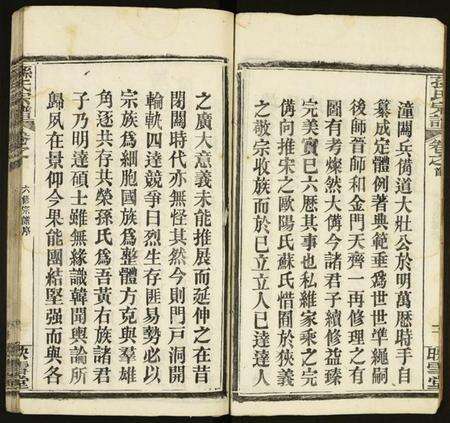 潼關兵備道大壯公於明萬厯時手自
纂成定體例著典範垂爲世世準繩嗣
後師首師和金門天齊一再修理之有
圖有考燦然大備今諸君子續修益臻
完美實已六厯其事也私維家乘之完
備向推宋之歐陽氏蘇氏惜囿於狹義
之敬宗收族而於已立立人已達達人
之廣大意義未能推展而延伸之在昔
閉關時代亦無怪其然今則門戸洞開
輪軌四達競爭日烈生存匪易勢必以
宗族爲細胞國族爲整體方克與羣雄
角逐共存共榮孫氏爲吾黃右族諸君
子乃明達碩士雖無緣識韓聞輿論所
歸夙在景仰今果能團結堅强而與各
孫氏宗譜
卷之首
六修宗譜序
映雪堂
孫氏宗譜
卷之首
二
映雪堂